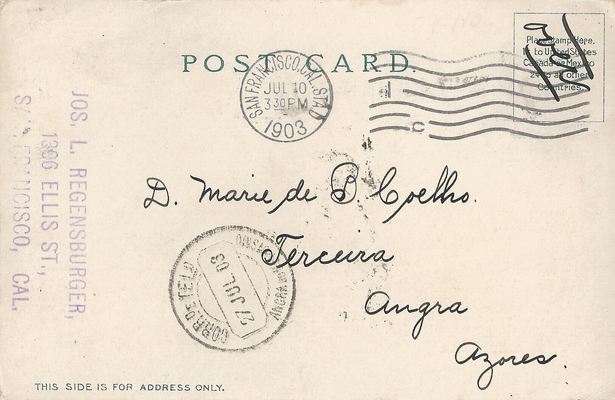 POST CARD.
SAN FRANCISCO, CAL. STA.
JUL 10
3 30 PM
1903
Place Stamp Here.
1c to United States
Canada & Mexico
2c to all other
Countries.
JOS. L. REGENSBURGER,
1306 ELLIS ST.,
SAN FRANCISCO, CAL.
D. Marie de B. Coelho.
Terceira
Angra
Azores.
CORR. E TEL.
27 JUL. 03
ANGRA
THIS SIDE IS FOR ADDRESS ONLY.